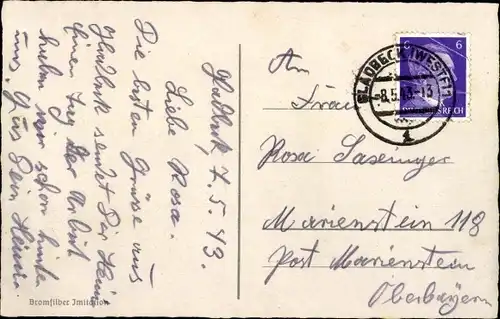 Gladbeck, 7.5.43.
Liebe Rosa.
Die besten Grüße aus
Gladbeck sendet Dir Heini
einen Tag der Arbeit
haben wir schon hinter
uns. Gruß Dein Heini.
Bromsilber Imitation
GLADBECK (WESTF)
-8.5.43.-13
1
6
REICH
An
Frau
Rosa
Marienstein 118
Post Marienstein
Oberbayern